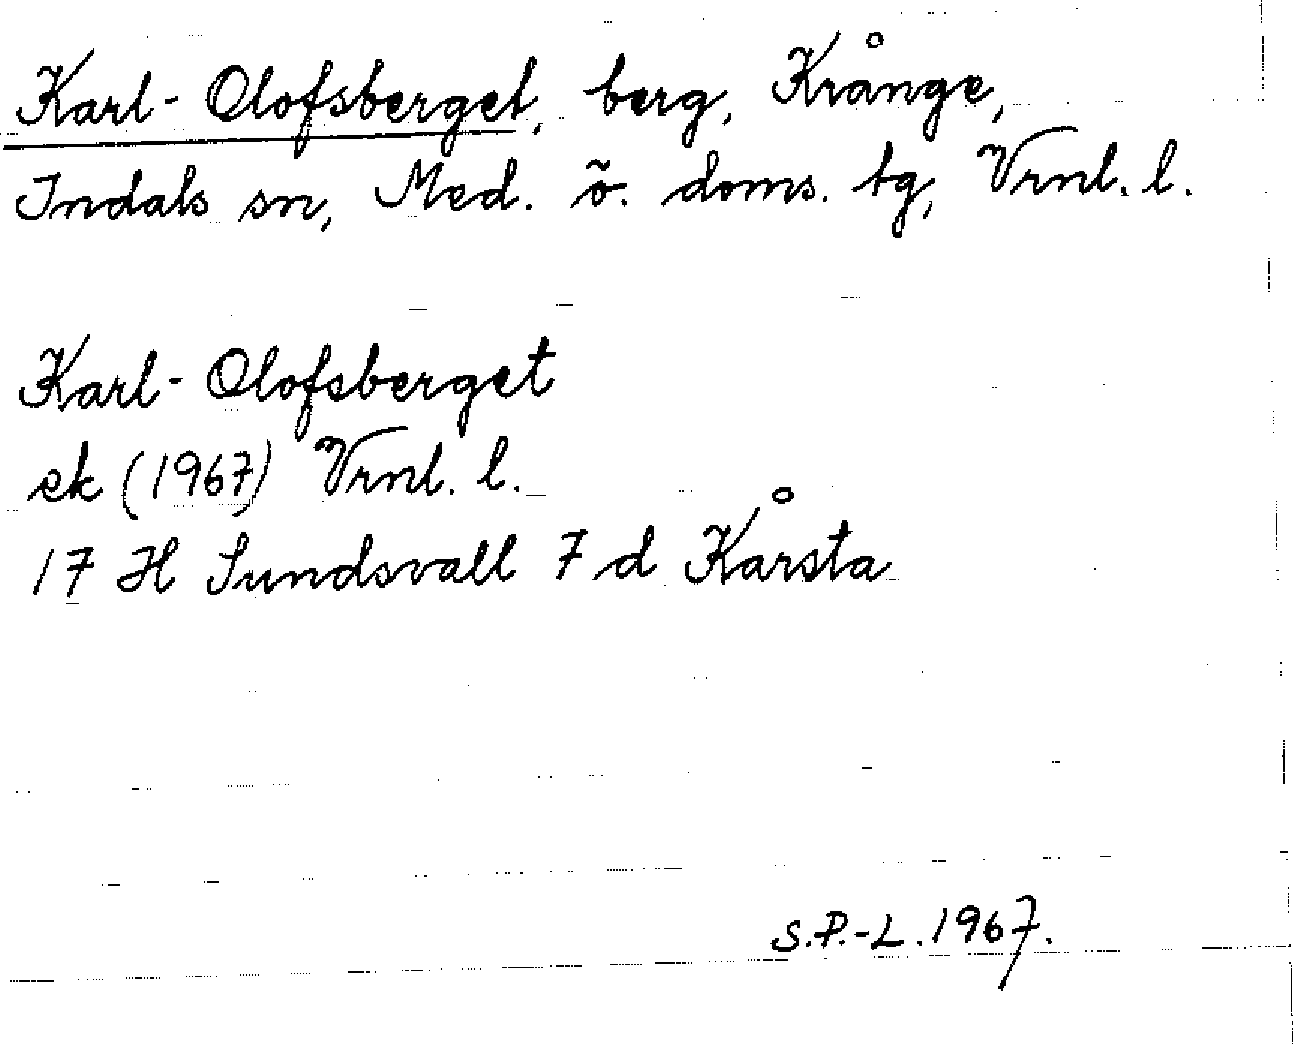 Karl-Olofsberget, berg, Krånge,
Indals sn, Med. ö. doms. tg, Vrnl. l.
Karl-Olofsberget
ek (1967) Vrnl. l.
17 H Sundsvall 7 d Kårsta
S.P.-L. 1967.